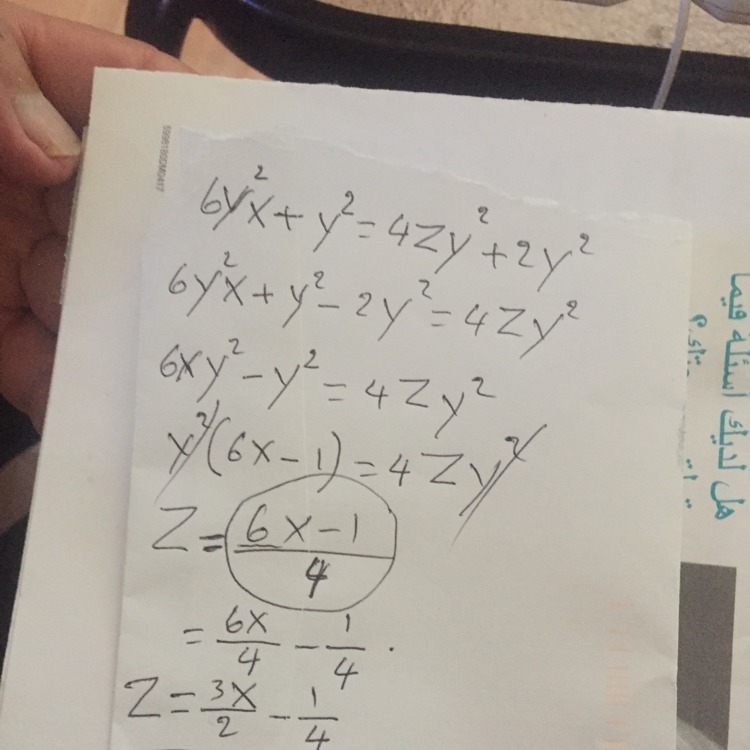 6y²x + y² = 4Zy² + 2y²
6y²x + y² - 2y² = 4Zy²
6xy² - y² = 4Zy²
y²(6x - 1) = 4Zy²
Z = (6x-1)/4
= 6x/4 - 1/4 .
Z = 3x/2 - 1/4
هل لديك اسئلة فيما